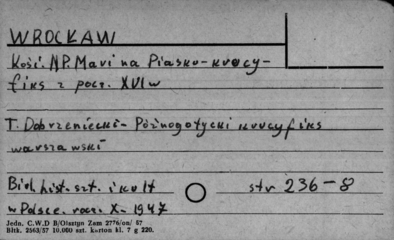 WROCŁAW
Kość. NP. Marii na Piasku - krucy-
fiks z pocz. XVI w
T. Dobrzeniecki - Późnogotycki krucyfiks
warszawski
Biul. hist. szt. i kult str 236-8
w Polsce. rocz. X - 1947
Jedn. C.W.D B/Olsztyn Zam 2776/on/ 57
Bltk. 2563/57 10.000 szt. karton kl. 7 g 220.